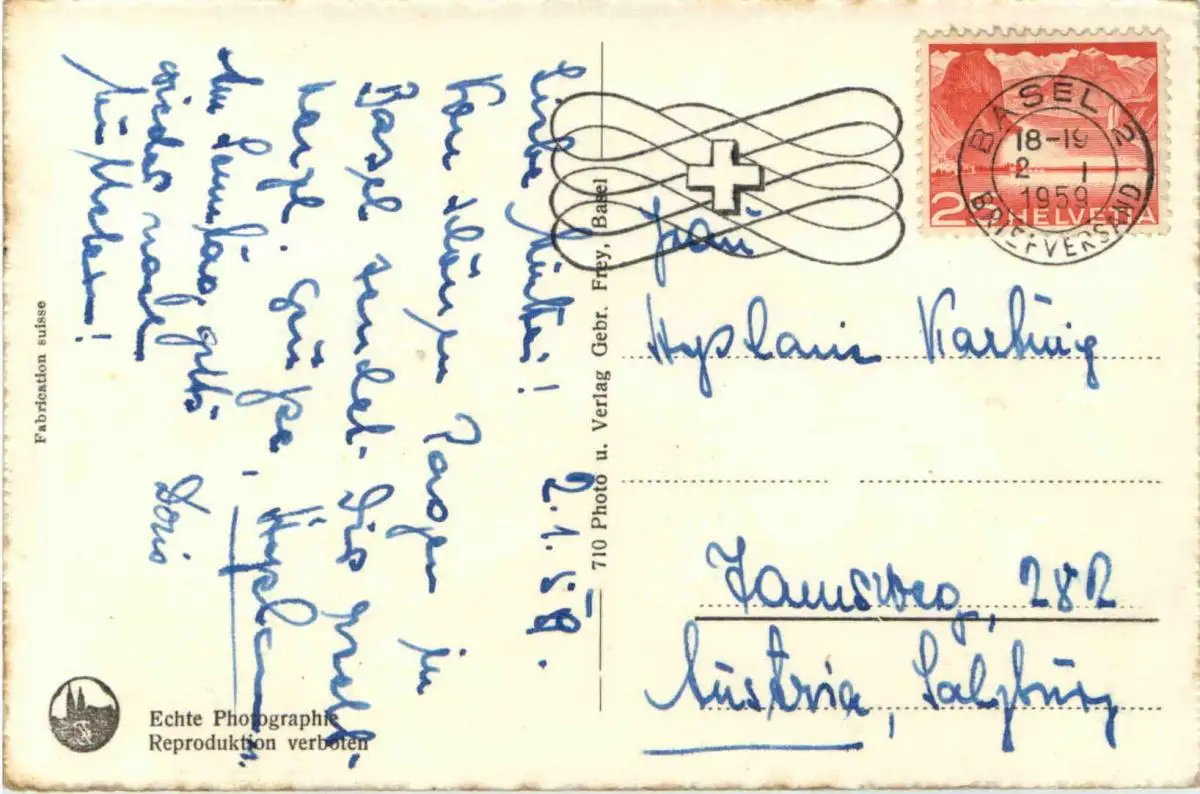 Liebe Mutti!
2.1.59.
Von schönen Tagen in
Basel sendet Dir herzl.
Grüsse,
Am Samstag geht's
wieder nach
München!
Doris
Frau
Karbing
Tamsweg, 282
Austria, Salzburg
BASEL 2
18-19
2 I
1959
BRIEFVERSAND
HELVETIA
710 Photo u. Verlag Gebr. Frey, Basel
Fabrication suisse
Echte Photographie
Reproduktion verboten